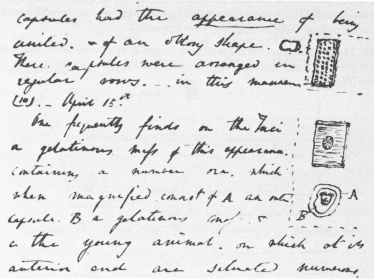 capsules had the appearance of being
united. & of an oblong shape.
These capsules were arranged in
regular rows. - in this manner
(10). - April 15th
One frequently finds on the Fuci
a gelatinous mass of this appearance
containing a number ova. which
when magnified consist of A an outer
capsule. B a gelatinous mass &
c the young animal. on which at its
anterior end are situated numerous
A
B